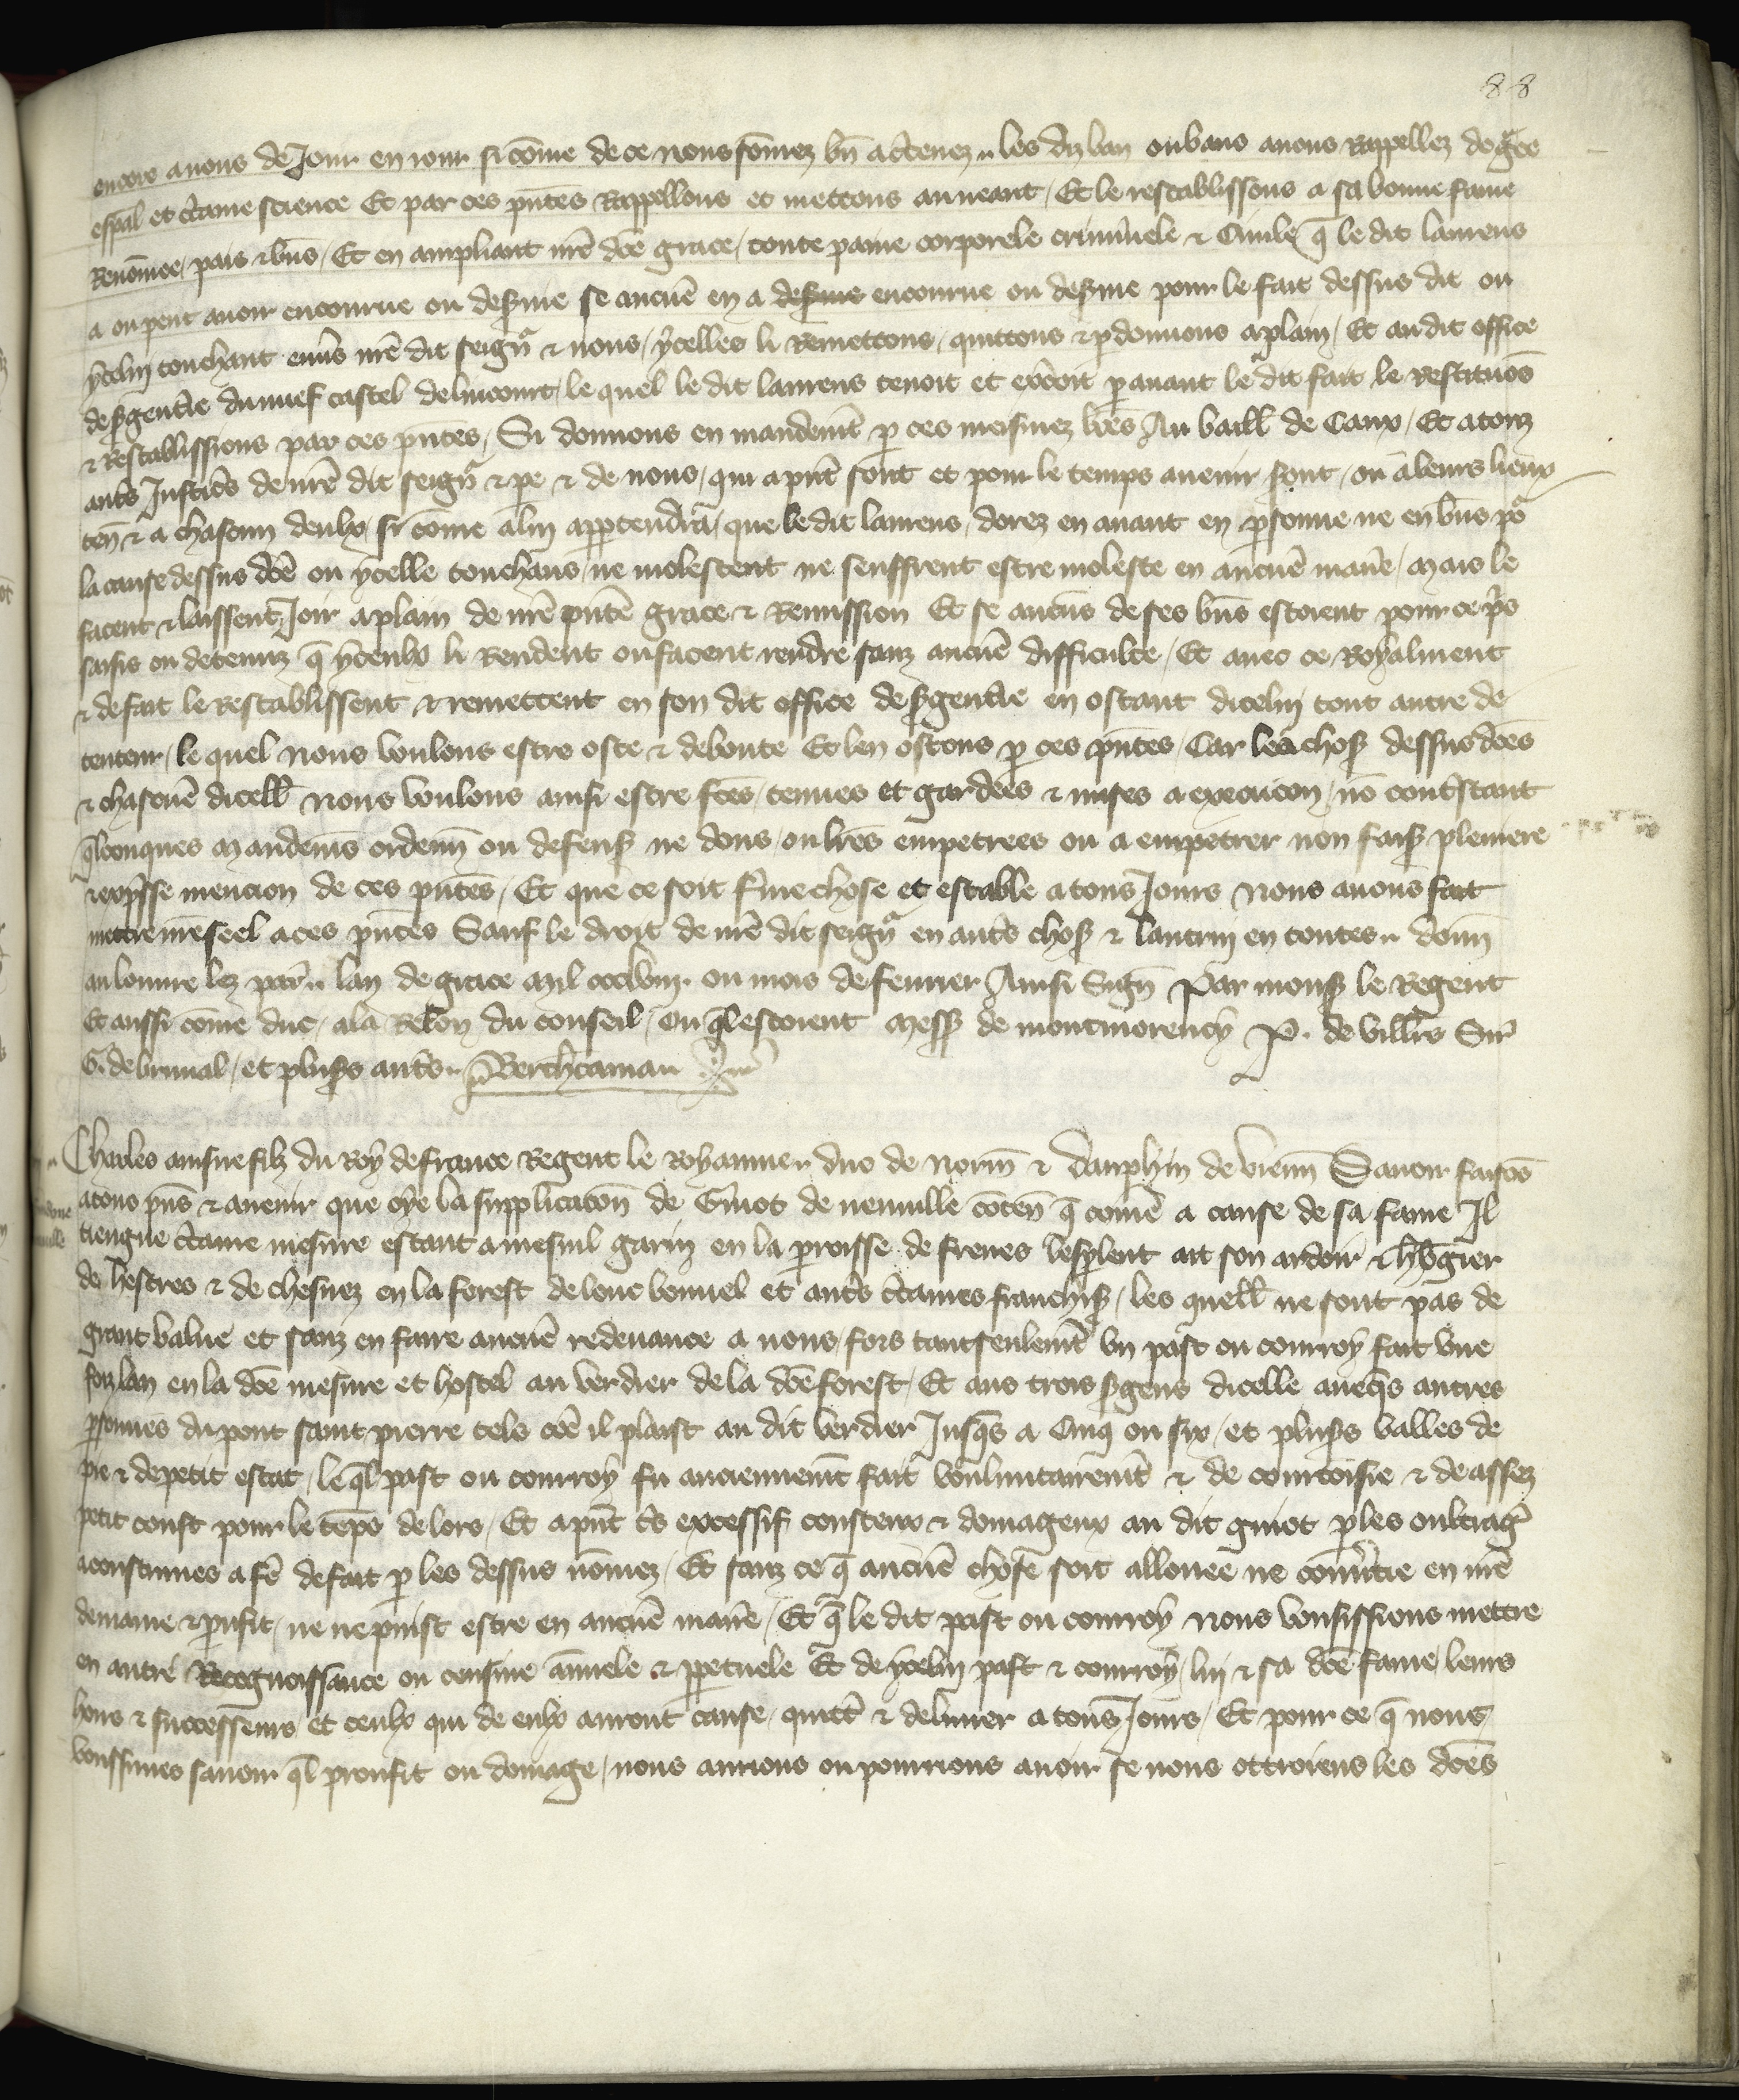 88
encore auons de Jour en iour si cōme de ce nous sōmez bn̄ actenez .. les diz ban ou bans auons Rappellez de gͣce
esp̄al et c̾taine science Et par ces pn̄tes Rappellons et mettons au neant / Et le restablissons a sa bonne fame
Renōmee / pais ⁊ bn̄s / Et en ampliant nr̄e dc̄e grace / toute paine corporele criminele ⁊ Ciuile q̄ le dit laurens
a ou peut auoir encourue ou desseruie se aucun̄e en a desseruie encourue ou desseruie pour le fait dessus dit ou
ycelui touchant enu̾s nr̄e dit seign̾ ⁊ nous / ycelles li Remettons / quittons ⁊ ꝑdonnons a plain / Et au dit office
de s̾genterie du nuef castel de lincourt / le quel le dit laurens tenoit et exc̾oit ꝑ auant le dit fait le restituōs
⁊ Restablissions par ces pn̄tes / Si donnons en mandem̄t ꝑ ces meismez lr̄es Au baill̄ de Caux / Et a touz
aut̾s Justic̾s de nr̄e dit seign̾ ⁊ pe ⁊ de nous / qui a pn̄t sont et pour le temps auenir sont / ou a leurs lieux
ten̄ ⁊ a chascun deulx si cōme a lui apptendra / que le dit laurens / dorez en auant en ꝑsonne ne en bn̄s po̾
la cause dessus dc̄e ou ycelle touchans / ne molestent ne seuffrent estre moleste en aucun̄e man̄e / mais le
facent ⁊ laissent Joir a plain de nr̄e pn̄te grace ⁊ Remission Et se aucūs de ses bn̄s estoient pour ce p̾s
saisis ou detenuz q̄ yceulx li Rendent ou facent rendre sanz aucun̄e difficulte / Et auec ce Royalment
⁊ de fait le restablissent ⁊ remettent en son dit office de s̾genterie en ostant dicelui tout autre de
tenteur / le quel nous voulons estre oste ⁊ deboute Et len ostons ꝑ ces pn̄tes / Car les choses dessus dc̄es
⁊ chascun̄e dicell̄ nous voulons ainsi estre fc̄es / tenues et gardees ⁊ mises a execucion / nō contrestant
q̄lconques mandem̄s ordenn̄ ou defenses ne dons / ou lr̄es empetrees ou a empetrer non fais̾ pleniere
⁊ exp̾sse mencion de ces pn̄tes / Et que ce soit f̾me chose et estable a tous Jours nous auons fait
mettre nr̄e seel a ces pn̄tes Sauf le droit de nr̄e dit seign̾ en aut̾s choses ⁊ lautrui en toutes .. donn̄
au louure lez par̾ .. lan de grace mil ccclviii. ou mois de feurier Ainsi Sign̄ Par mons̾ le Regent
Et aussi cōme duc / a la Relōn du conseil / ou q̄l estoient mess̾ de montmorency P. de vill̾s Sir̾
G. de brunal / et pluss̾s aut̾s .. Berthaman

Charles ainsne filz du Roy de france Regent le Royaume .. duc de norm̄ ⁊ dauphin de vienn̄ Sauoir faisōs
a tous pn̄s ⁊ auenir que oye la supplicatōn de Guiot de neuuille cōten̄ q̄ cōme a cause de sa fame Il
tiengne c̾taine mesure estant a mesnil garin en la ꝑroisse de frenes lesplent ait son ardoir ⁊ h̾b̾gier
de hestres ⁊ de chesnez en la forest de lonc bouuel et aut̾s c̾taines franchis̾ / les quell̄ ne sont pas de
grant value et sanz en faire aucun̄e redeuance a nous / fors tant seulem̄t vn past ou conroy fait vne
foiz lan en la dc̄e mesure et hostel au verdier de la dc̄e forest / Et aus trois s̾gens dicelle auec̄s autres
ꝑsonnes du pont saint pierre tels cōe il plaist au dit verdier Jusq̄s a Cinq ou six / et pluss̾s valles de
pie ⁊ de petit estat / le q̄l past ou conroy fu anciennem̄t fait voluntairem̄t ⁊ de courtoisie ⁊ de assez
petit coust pour le tēps de lors / Et a pn̄t t̾s excessif cousteux ⁊ domageux au dit guiot ꝑ les oultrag̾
acoustumes a fe̾ de fait ꝑ les dessus nōmez / Et sanz ce q̄ aucun̄e chose soit allouee ne conu̾tie en nr̄e
demaine ⁊ prufit / ne ne puist estre en aucun̄e man̄e / Et q̄ le dit past ou conroy nous vousissions mettre
en autre Recognoissance ou censiue ānuele ⁊ ꝑpetuele Et de ycelui past ⁊ conroy / lui ⁊ sa dc̄e fame leurs
hoirs ⁊ successeurs et ceulx qui de eulx auront cause / quitt̾ ⁊ deliurer a tous Jours / Et pour ce q̄ nous
voussimes sauoir q̄l proufit ou domage / nous aurions ou pourrions auoir se nous ottroiens les dc̄es